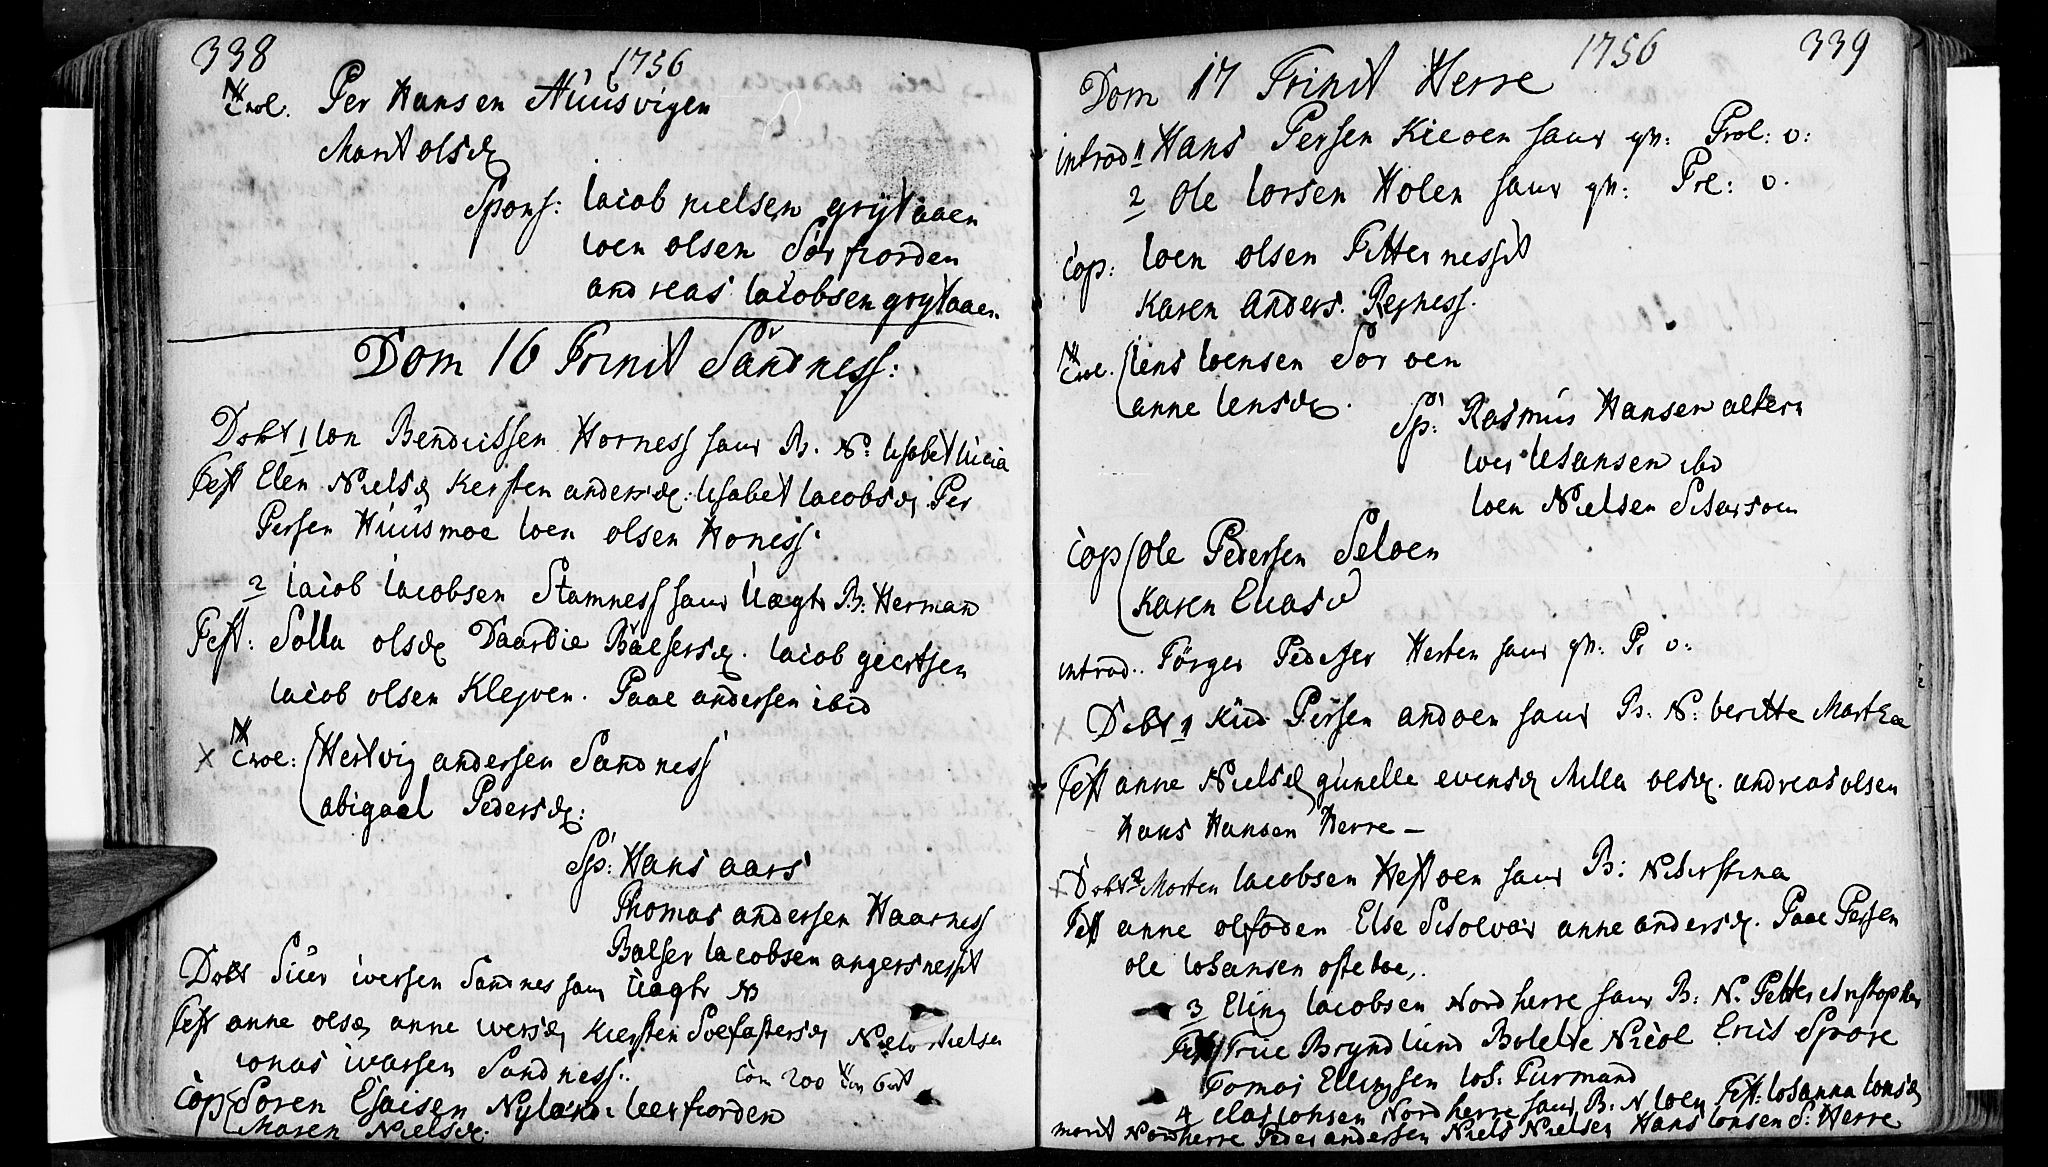 338
1756
Trol. Per Hansen Huusvigen
Marit olsd
Spons: Iacob nielsen grytaaen
Ioen olsen Sörfiorden
andreas Iacobsen grytaaen
Dom 16 Trinit Sandness:
Döbt 1 Ion Bendixsen Horness saur B. N: Lisabet Lucia
Test Elen Nielsd Kersten andersd: Lisabet Iacobsd Per
Persen Huusmoe Ioen olsen Honess
2 Iacob Iacobsen Stamness saur Uægte B: Herman
Test: Solla olsd Daardie Balsersd. Iacob geertsen
Iacob olsen Klejven. Paal andersen ibid
Trol: Hertvig andersen Sandness
abigael Pedersd:
Sp: Hans aars
Thomas andersen Haarness
Balser Iacobsen angersnessit
Döbt Siur iversen Sandnes saur Uægte N
Test anne olsd anne iversd Kiersten Solfastersd Niels Nielsen
ionas ivarsen Sandness.
Com 200
Cop Soren Esaisen Nyland Leerfiorden
Maren Nielsd:
1756
339
Dom 17 Trinit Herrö
introd 1 Hans Persen Kieöen saur qv: Prol: v:
2 Ole Iorsen Holen saur qv: Prl: v.
Cop: Ioen olsen Fitternessit
Karen anders. Reÿness.
Trol. Iens Ioensen Sör oen
anne Iensd.
Sp: Rasmus Hansen alteren
ibid
Ioen Nielsen
Cop Ole Pedersen Seloen
Karen Eliasd
introd: Törger Pedersen Herten saur qv: Pr v:
Döbt 1 Knud Persen andoen saur B: N: beritte Marthea
Test anne Nielsd gunelle evensd Milla olsd. andreas olsen
Hans Hansen Herrö
Döbt 2 Morten Iacobsen Hestoen saur B:
Test anne olsdden Else anne andersd. Paal Persen
ole Iohansen
3 Eling Iacobsen Nordherrö saur B: N. Petter Christopher
Test Frue Bryndlund Bolette Nicol Erics Spore
Tomas Ellingsen Ios. Furmand
4 Clas Iohsen Nordherrö saur B. N Ioen Test: Iohanna Ionsd
marit Nordherrö Peder andersen Niels Nielsen Hans Ionsen S: Herrö